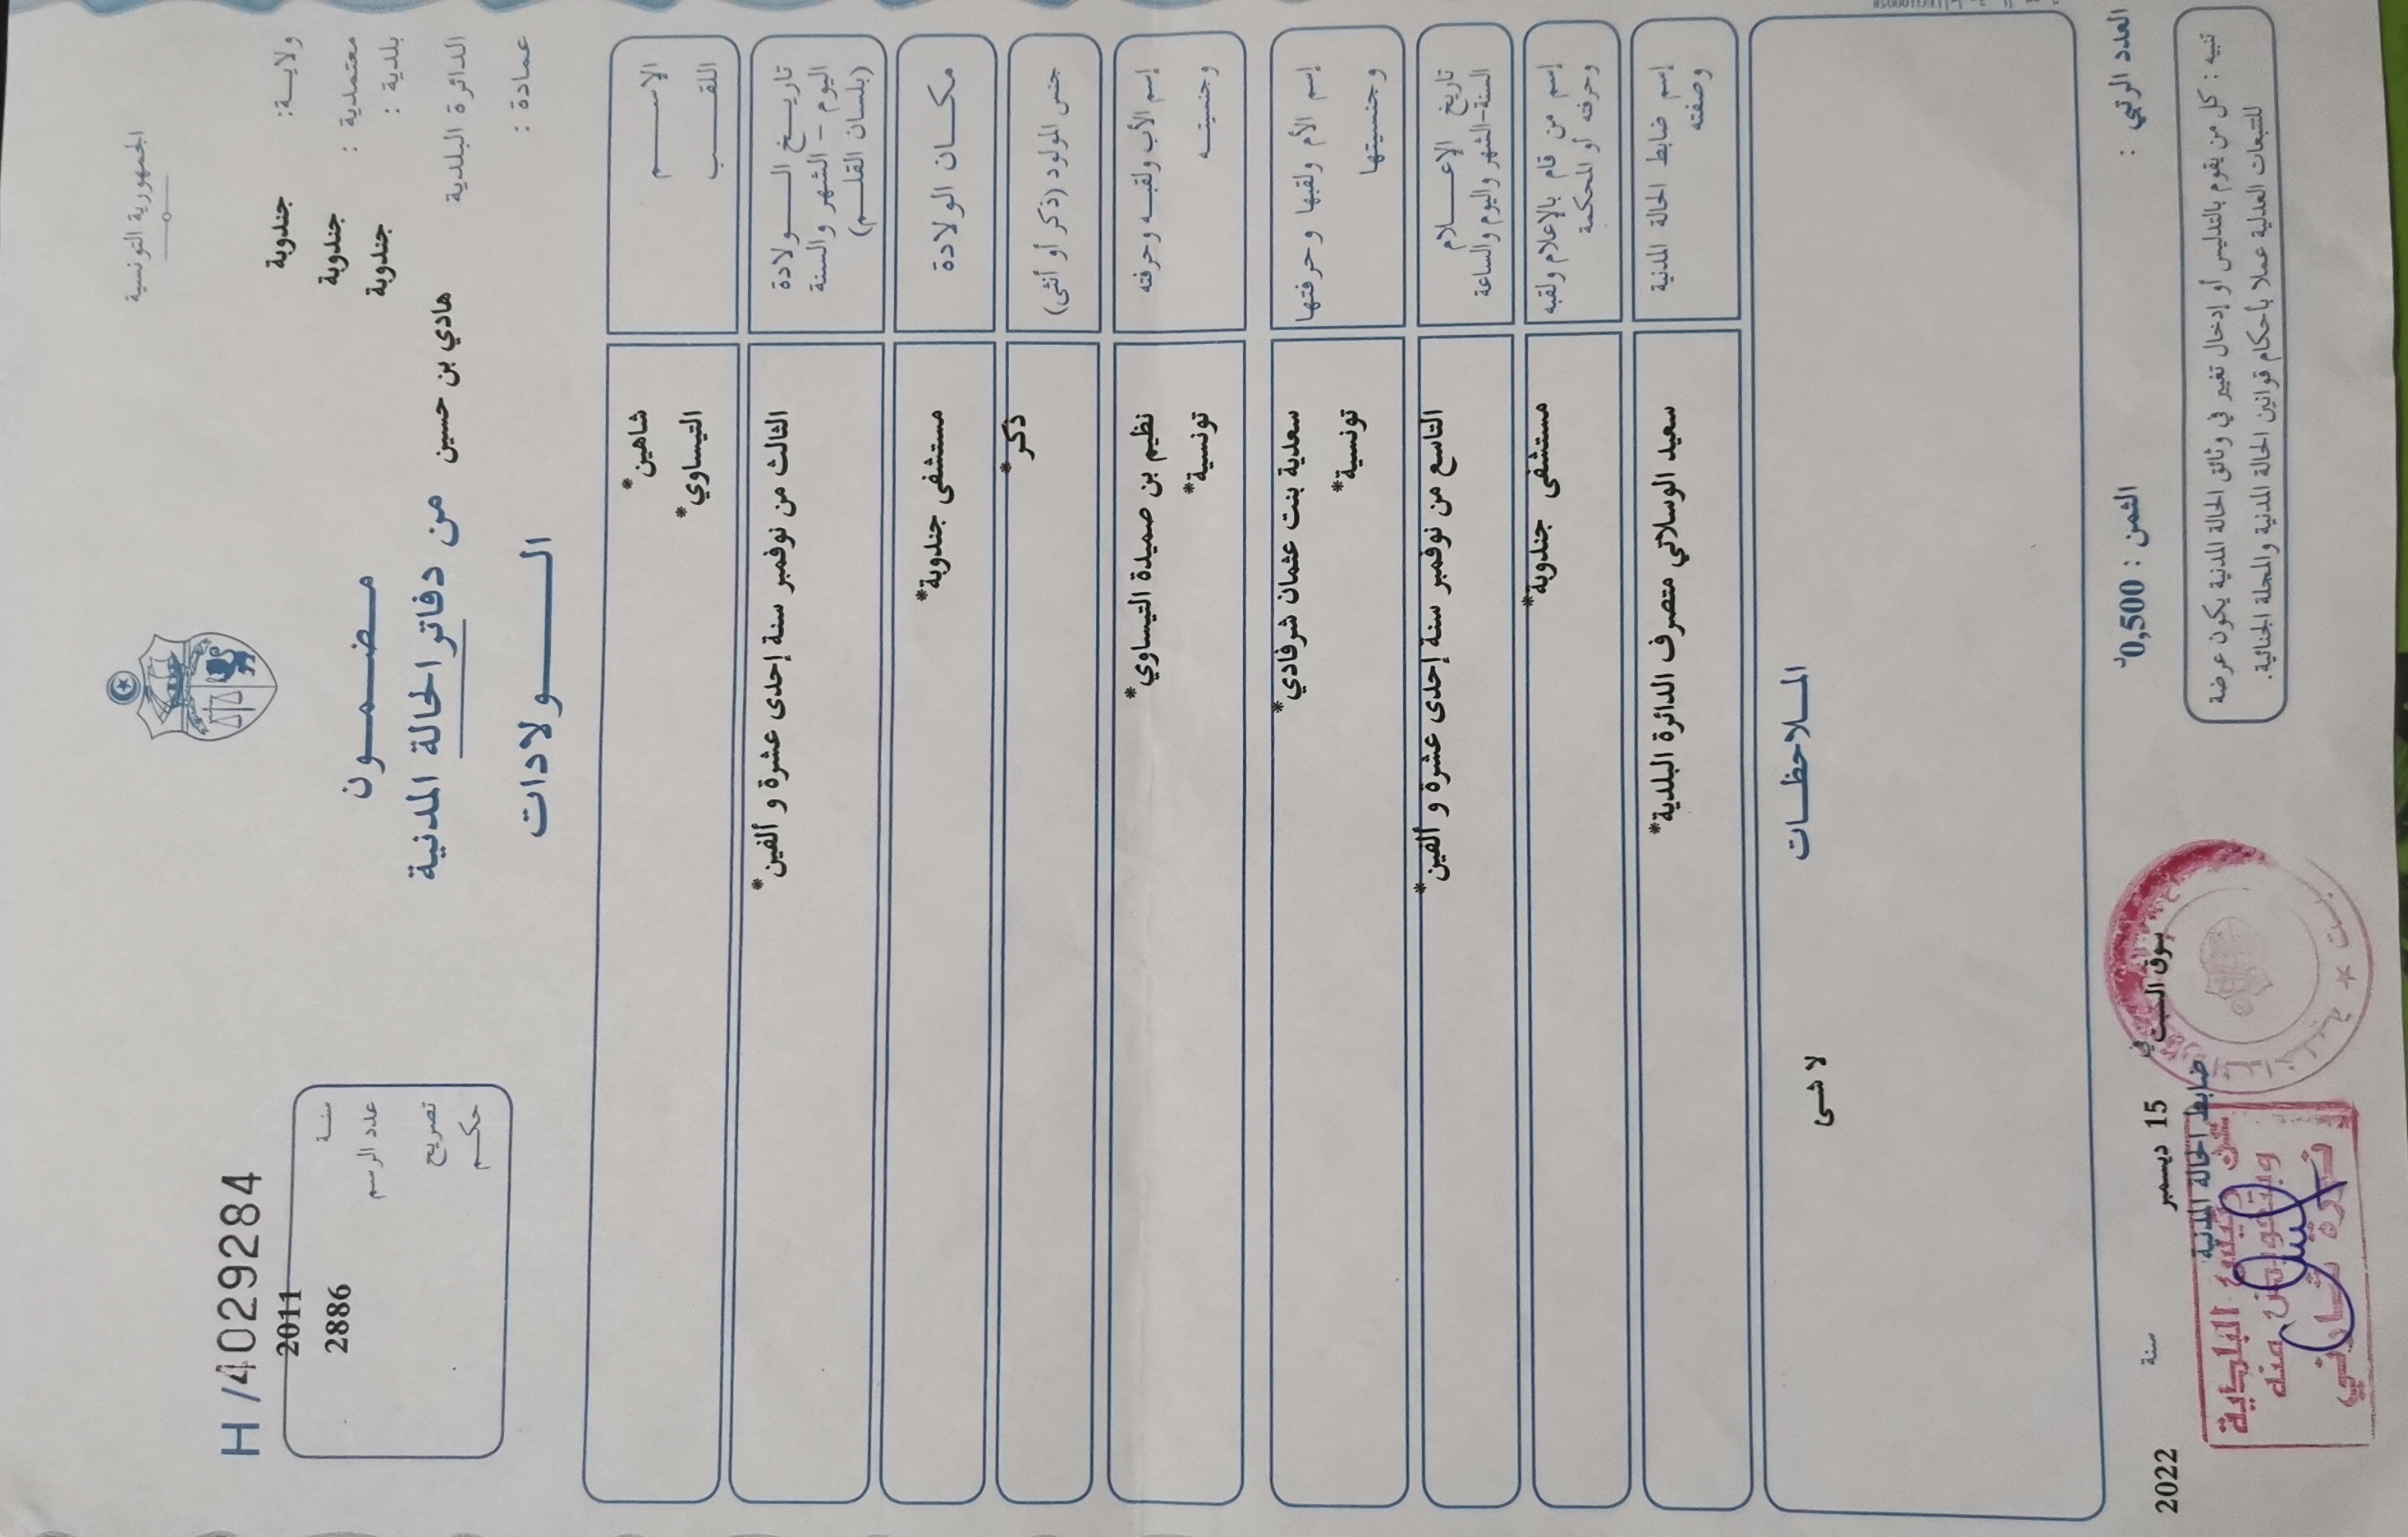 الجمهورية التونسية
H / 4029284
ولايـة: جندوبة
معتمدية : جندوبة
بلدية : جندوبة
الدائرة البلدية هادي بن حسين
عمادة :
سنـة 2011
عدد الرسم 2886
تصريح
حكـم
مـضـمـون
من دفاتر الحالة المدنية
الـولادات
الإسـم شاهين*
اللقـب التيساوي*
تاريـخ الـولادة
اليوم - الشهر والسنة
(بلسان القلـم)
الثالث من نوفمبر سنة إحدى عشرة و ألفين*
مكـان الولادة مستشفى جندوبة*
جنس المولود (ذكر أو أنثى) ذكر*
إسم الأب ولقبـه وحرفته نظيم بن صميدة التيساوي*
وجنسيتـه تونسية*
إسم الأم ولقبها وحرفتها سعدية بنت عثمان شرفادي*
وجنسيتها تونسية*
تاريخ الإعـلام
السنة-الشهر واليوم والساعة
التاسع من نوفمبر سنة إحدى عشرة و ألفين*
إسم من قام بالإعلام ولقبه
وحرفته أو المحكمة
مستشفى جندوبة*
إسم ضابط الحالة المدنية
وصفته
سعيد الوسلاتي متصرف الدائرة البلدية*
المـلاحظـات
لا شى
العدد الرتبي :
الثمن : 0,500د
بوق السبت في 15 ديسمبر سنة 2022
ضابط الحالة المدنية
تنبيه : كل من يقوم بالتدليس أو إدخال تغيير في وثائق الحالة المدنية يكون عرضة
للتتبعات العدلية عملا بأحكام قوانين الحالة المدنية والمجلة الجنائية.
عن رئيس البلدية
وبتفويض منه